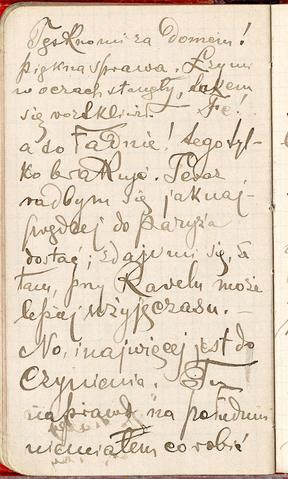 Tęskno mi za domem!
Piękna sprawa. Łzy mi
w oczach stanęły, takem
się Fe!
a do ładnie! tego tyl-
ko brakuje. Teraz
radbym się jaknaj-
prędzej do Paryża
dostać; zdaje mi się, że
tam, przy Ravelu może
lepiej użyję czasu. —
No, i najwięcej jest do
czynienia. Tu
naprawdę na południu
nie miałem co robić